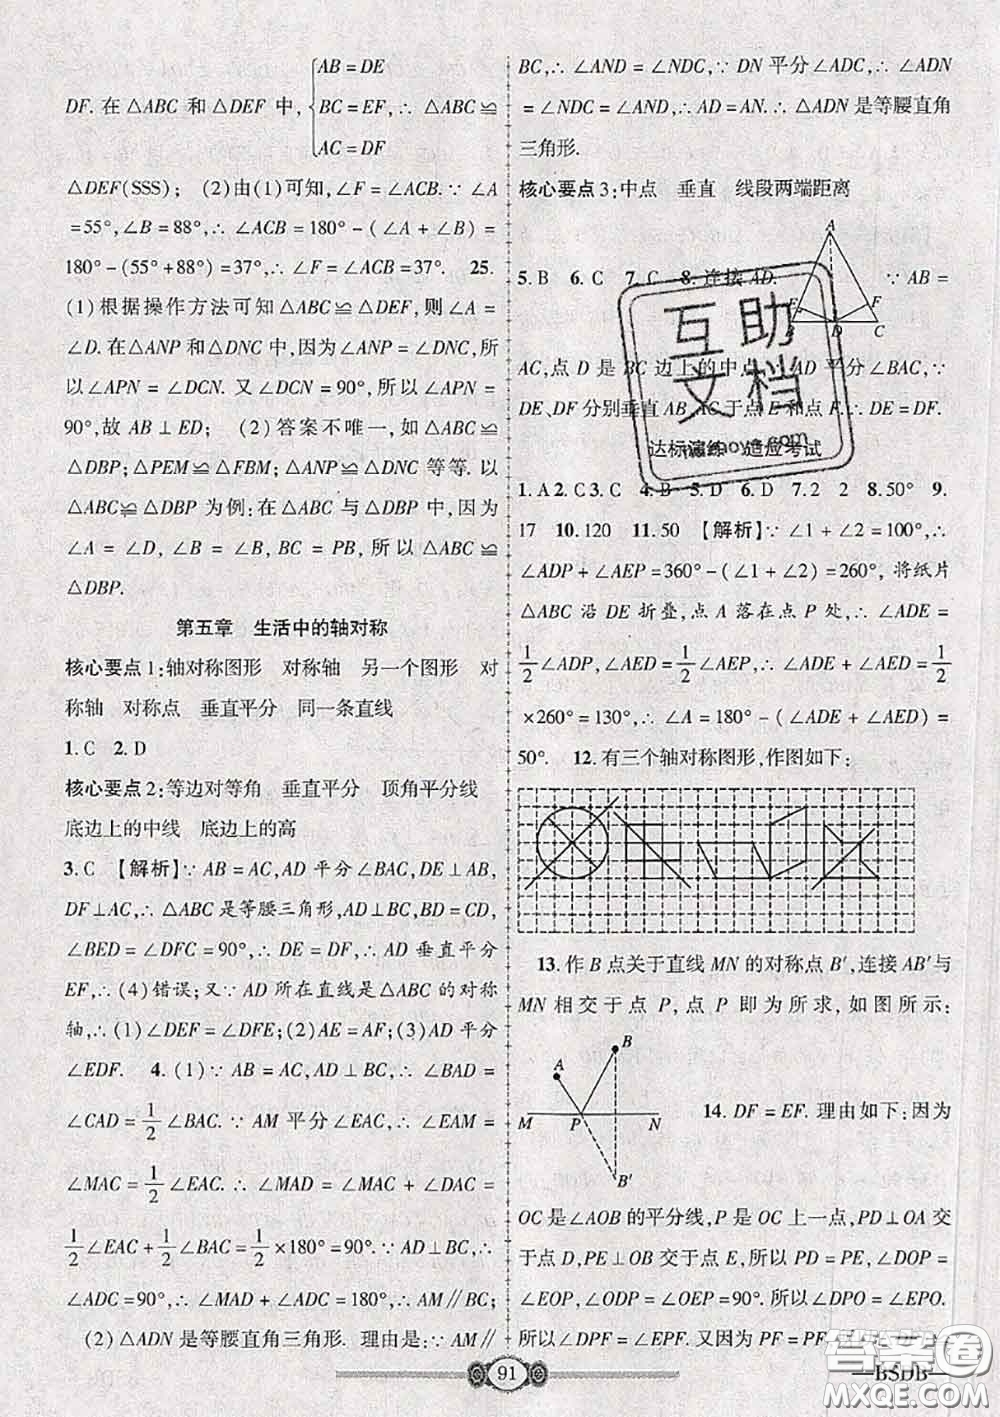 AB = DE
DF. 在 △ABC 和 △DEF 中, BC = EF, ∴ △ABC ≌
AC = DF
△DEF(SSS); (2)由(1)可知, ∠F = ∠ACB. ∵ ∠A
= 55°, ∠B = 88°, ∴ ∠ACB = 180° - (∠A + ∠B) =
180° - (55° + 88°) = 37°, ∴ ∠F = ∠ACB = 37°. 25.
(1)根据操作方法可知 △ABC ≌ △DEF, 则 ∠A =
∠D. 在 △ANP 和 △DNC 中, 因为 ∠ANP = ∠DNC, 所
以 ∠APN = ∠DCN. 又 ∠DCN = 90°, 所以 ∠APN =
90°, 故 AB ⊥ ED; (2)答案不唯一, 如 △ABC ≌
△DBP; △PEM ≌ △FBM; △ANP ≌ △DNC 等等. 以
△ABC ≌ △DBP 为例: 在 △ABC 与 △DBP 中, 因为
∠A = ∠D, ∠B = ∠B, BC = PB, 所以 △ABC ≌
△DBP.
第五章 生活中的轴对称
核心要点 1: 轴对称图形 对称轴 另一个图形 对
称轴 对称点 垂直平分 同一条直线
1. C 2. D
核心要点 2: 等边对等角 垂直平分 顶角平分线
底边上的中线 底边上的高
3. C 【解析】∵ AB = AC, AD 平分 ∠BAC, DE ⊥ AB,
DF ⊥ AC, ∴ △ABC 是等腰三角形, AD ⊥ BC, BD = CD,
∠BED = ∠DFC = 90°, ∴ DE = DF, ∴ AD 垂直平分
EF, ∴ (4)错误; 又 ∵ AD 所在直线是 △ABC 的对称
轴, ∴ (1)∠DEF = ∠DFE; (2)AE = AF; (3)AD 平分
∠EDF. 4. (1) ∵ AB = AC, AD ⊥ BC, ∴ ∠BAD =
∠CAD = 1/2 ∠BAC. ∵ AM 平分 ∠EAC, ∴ ∠EAM =
∠MAC = 1/2 ∠EAC. ∴ ∠MAD = ∠MAC + ∠DAC =
1/2 ∠EAC + 1/2 ∠BAC = 1/2 × 180° = 90°. ∵ AD ⊥ BC, ∴
∠ADC = 90°, ∴ ∠MAD + ∠ADC = 180°, ∴ AM ∥ BC;
(2) △ADN 是等腰直角三角形. 理由是: ∵ AM ∥
BC, ∴ ∠AND = ∠NDC, ∵ DN 平分 ∠ADC, ∴ ∠ADN
= ∠NDC = ∠AND, ∴ AD = AN. ∴ △ADN 是等腰直角
三角形.
核心要点 3: 中点 垂直 线段两端距离
A
5. B 6. C 7. C 8. 连接 AD. E F ∵ AB =
B D C
AC, 点 D 是 BC 边上的中点 AD 平分 ∠BAC, ∵
DE、DF 分别垂直 AB、AC 于点 E 和点 F. ∴ DE = DF.
互助
文档
达标演练 适应考试
1. A 2. C 3. C 4. B 5. D 6. D 7. 2 2 8. 50° 9.
17 10. 120 11. 50 【解析】∵ ∠1 + ∠2 = 100°, ∴
∠ADP + ∠AEP = 360° - (∠1 + ∠2) = 260°, 将纸片
△ABC 沿 DE 折叠, 点 A 落在点 P 处, ∴ ∠ADE =
1/2 ∠ADP, ∠AED = 1/2 ∠AEP, ∴ ∠ADE + ∠AED = 1/2
× 260° = 130°, ∴ ∠A = 180° - (∠ADE + ∠AED) =
50°. 12. 有三个轴对称图形, 作图如下:
13. 作 B 点关于直线 MN 的对称点 B′, 连接 AB′与
MN 相交于点 P, 点 P 即为所求, 如图所示:
B
A
M P N 14. DF = EF. 理由如下: 因为
B′
OC 是 ∠AOB 的平分线, P 是 OC 上一点, PD ⊥ OA 交
于点 D, PE ⊥ OB 交于点 E, 所以 PD = PE, ∠DOP =
∠EOP, ∠ODP = ∠OEP = 90°. 所以 ∠DPO = ∠EPO.
所以 ∠DPF = ∠EPF. 又因为 PF = PF
91
—BSDB—
答案圈
MXQE.COM